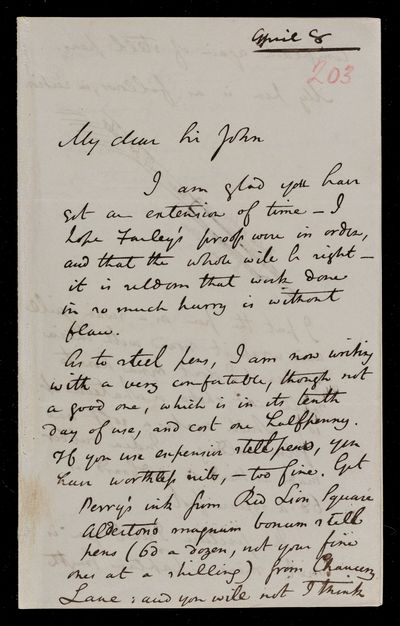 April 8
203
My dear Sir John
I am glad you have
got an extension of time – I
hope Farley's proofs were in order,
and that the whole will be right –
it is seldom that work done
in so much hurry is without
flaw.
As to steel pens, I am now writing
with a very comfortable, though not
a good one, which is in its tenth
day of use, and cost one halfpenny.
If you use expensive steel pens, you
have worthless nibs, – too fine. Get
Perry's ink from Red Lion Square
Alderton's magnum bonum steel
pens (6d a dozen, not your fine
ones at a shilling) from Chancery
Lane : and you will not I think